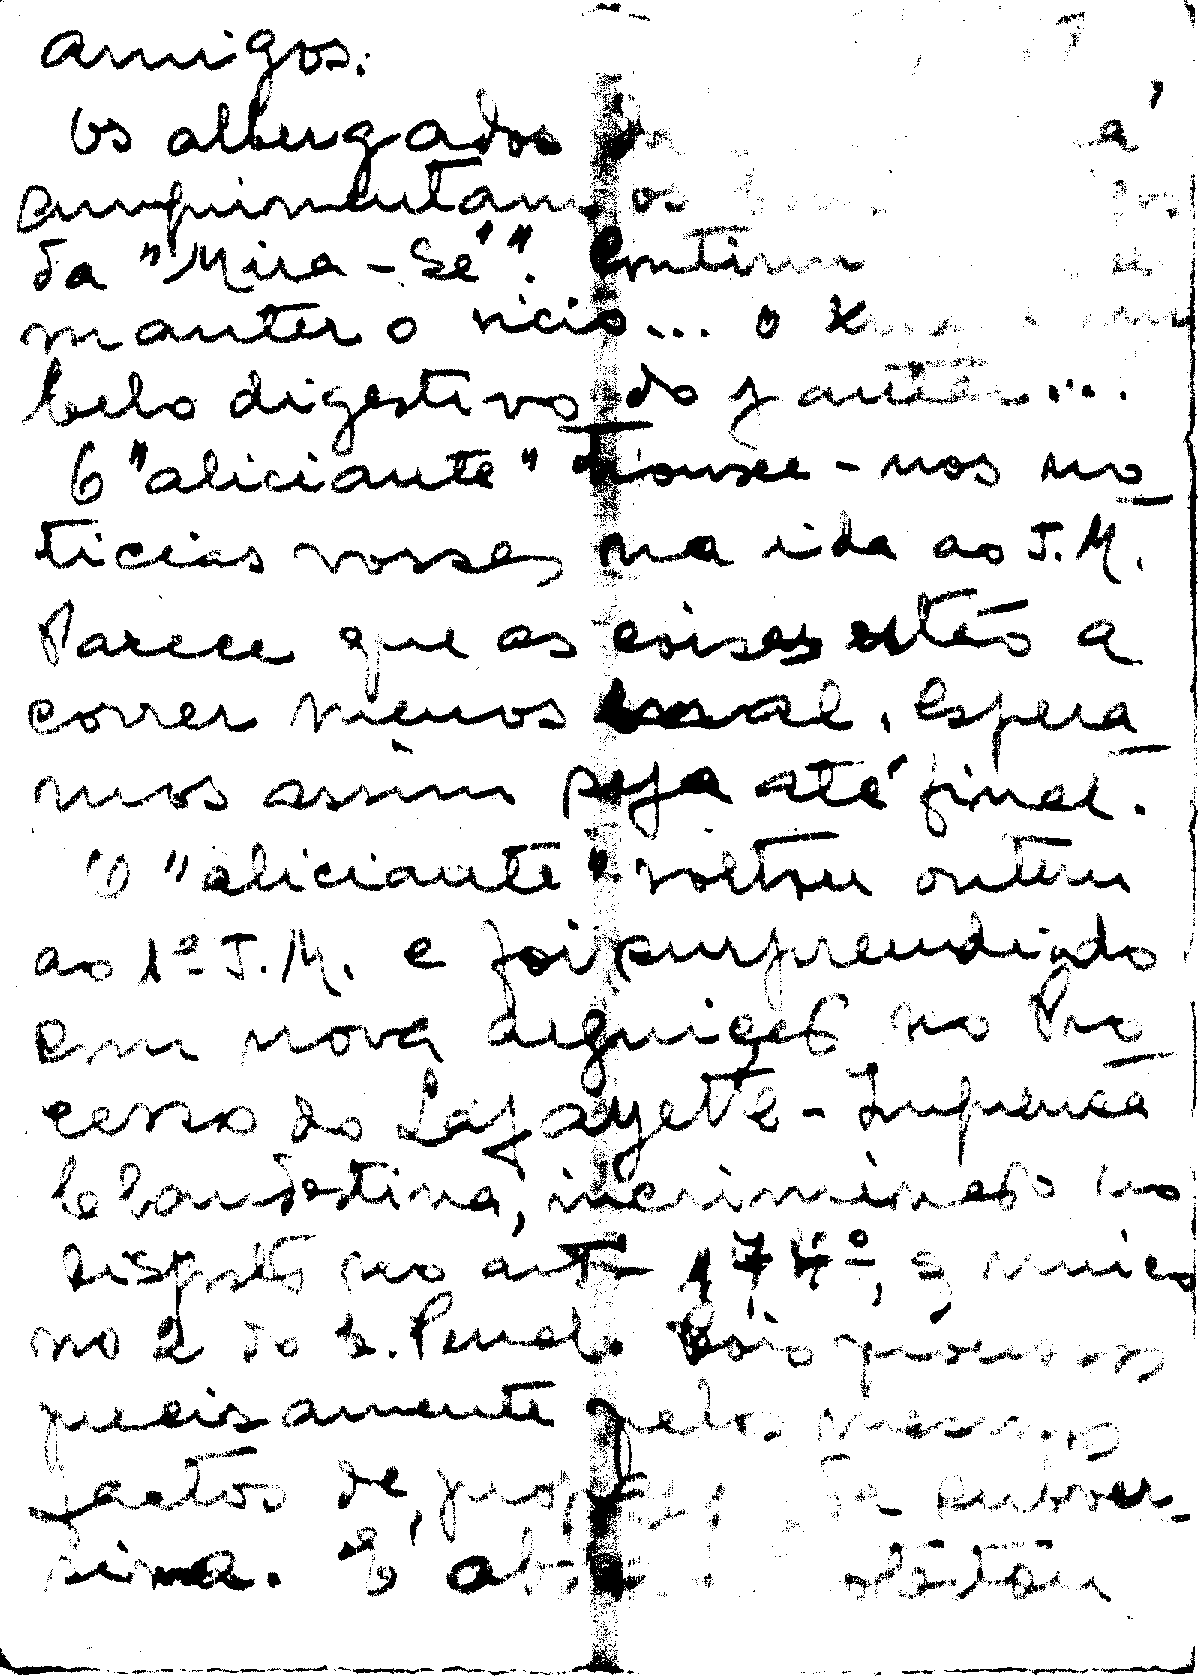 amigos.
Os albergados da a'
cumprimentam os
da "Mira-Sé".
manter o vicio... o
belo digestivo do jantar...
O "aliciante" trouxe-nos no-
ticias vossas na ida ao J.M.
Parece que as coisas estão a
correr menos mal. Espera-
mos assim seja até final.
O "aliciante" voltou ontem
ao 1º J.M. e foi surprendido
em nova arguição no Pro-
cesso do Lafayete-Imprensa
Clandestina, incriminado no
disposto no art 174º, e
no 2 do C. Penal. Dois processos
precisamente pelos mesmos
factos de, da subver-
siva. E'